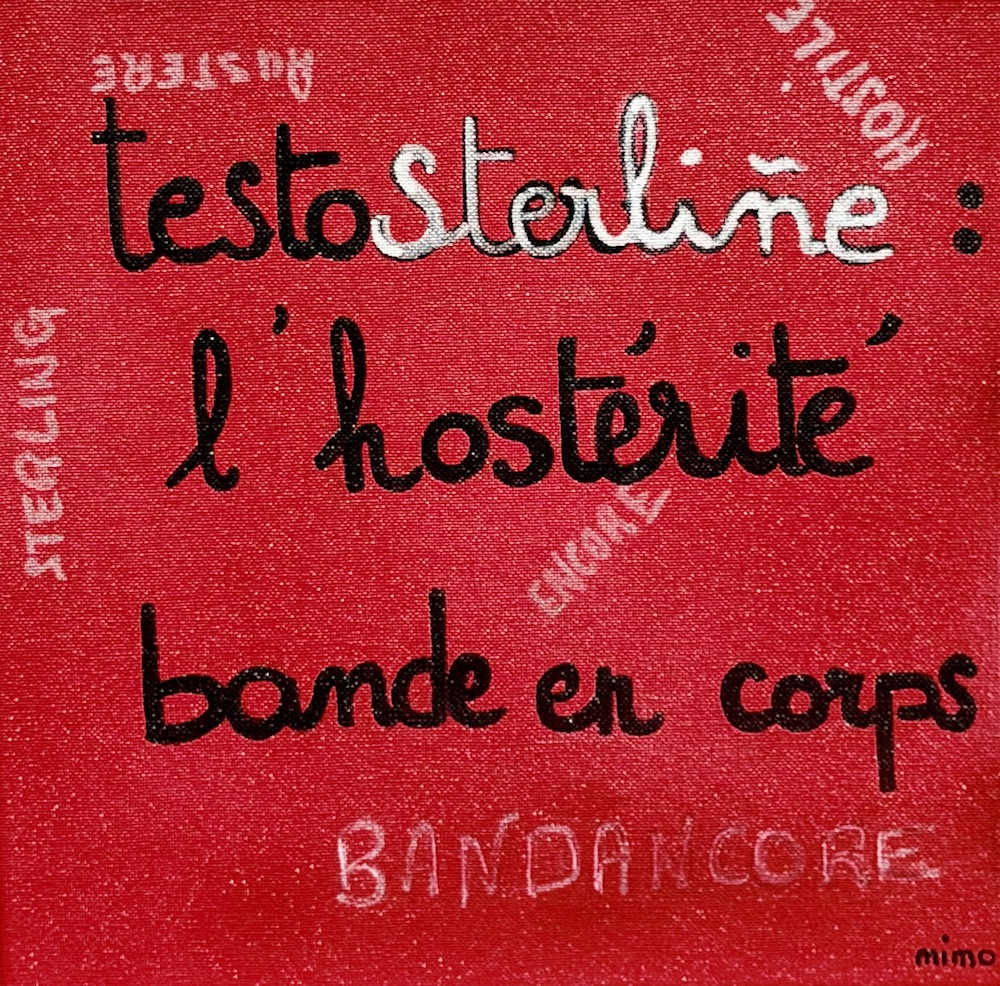 AuSTERE
HOSTiLE
testosterliñe :
l'hostérité
STERLING
ENCORE
bande en corps
BANDANCORE
mimo